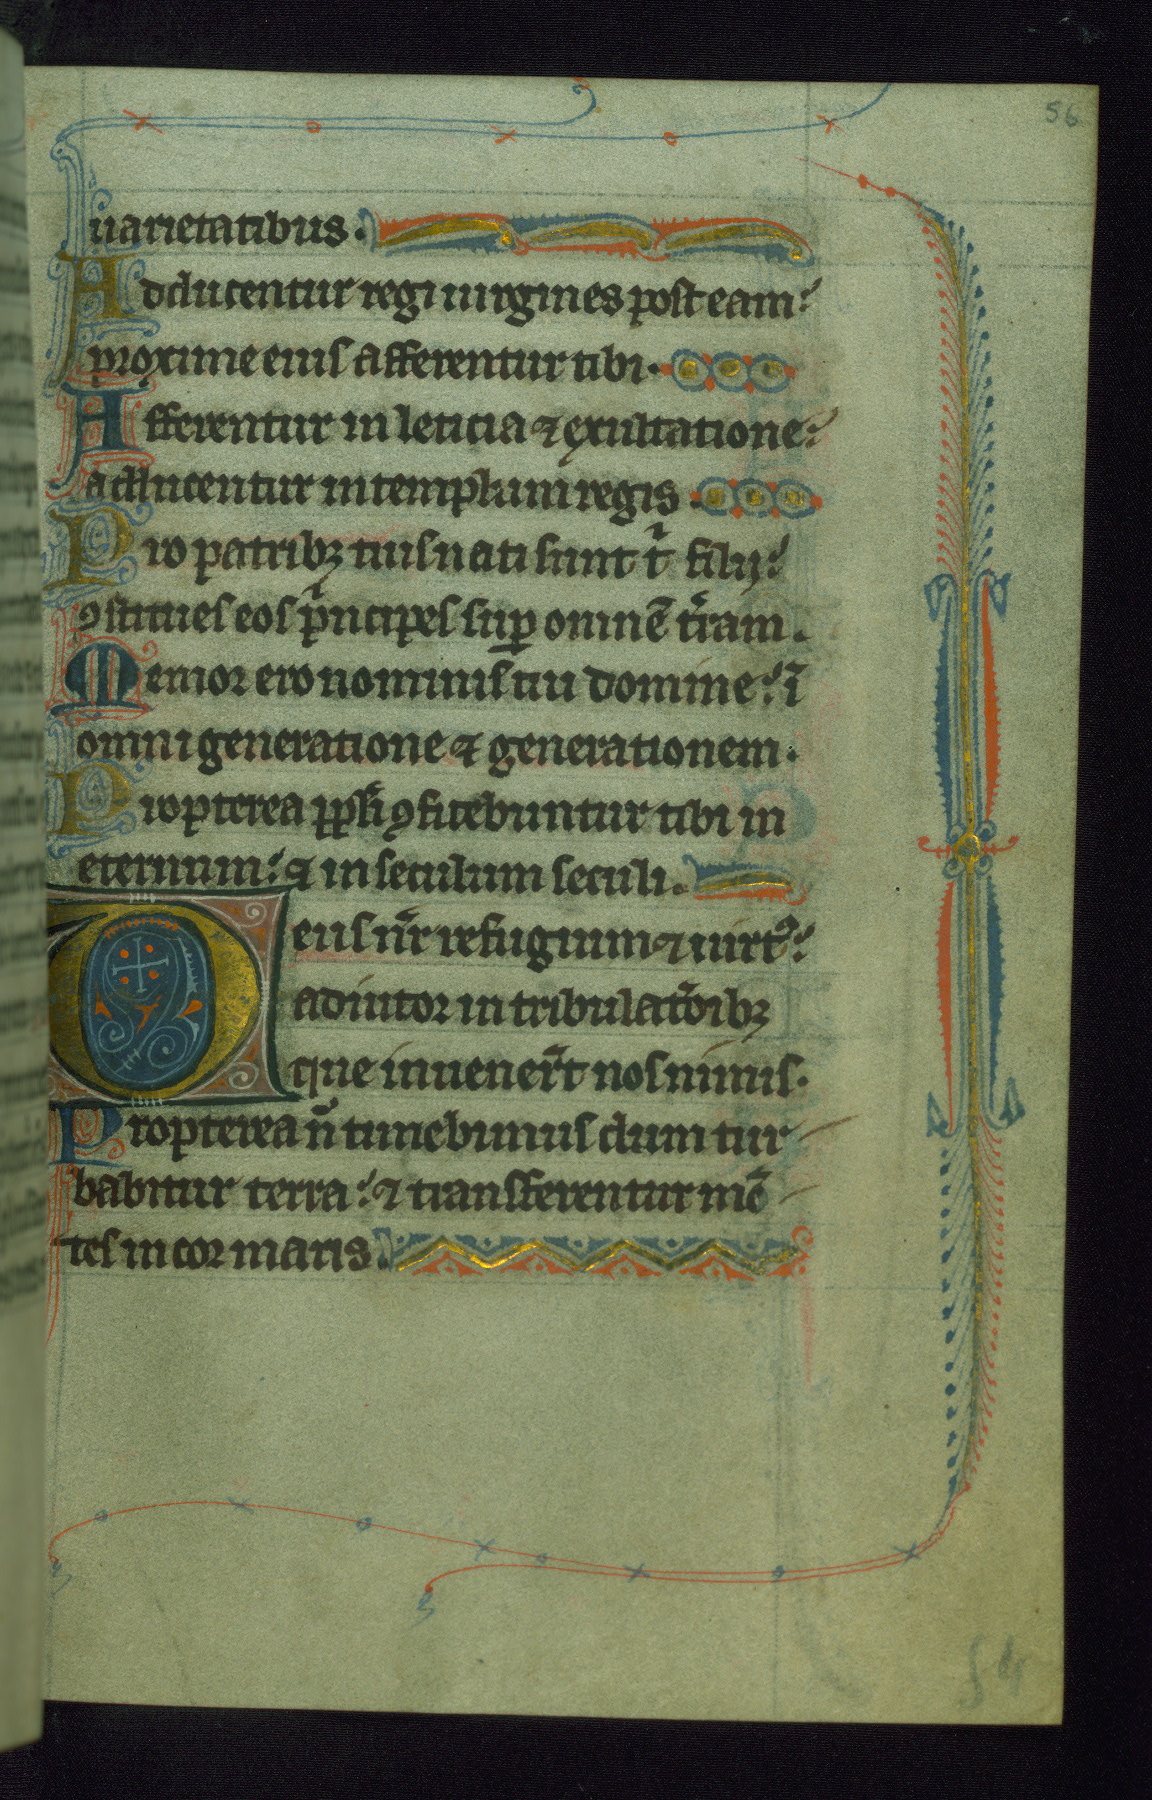 56
uarietatibus.
Adducentur regi uirgines post eam:
proxime eius afferentur tibi.
Afferentur in leticia ⁊ exultatione:
adducentur in templum regis.
Pro patribꝫ tuis nati sunt tⁱ filij:
ꝯstitues eos pⁱncipes suꝑ omnē tr̄am.
Memor ero nominis tui domine: ī
omni generatione ⁊ generationem.
Propterea ppl̄i ꝯfitebuntur tibi in
eternum: ⁊ in seculum seculi.
Deus nr̄ refugium ⁊ uirtꝰ:
adiutor in tribulatōibꝫ
que inuener̄t nos nimis.
Propterea n̄ timebimus dum tur
babitur terra: ⁊ transferentur mō
tes in cor maris.
54